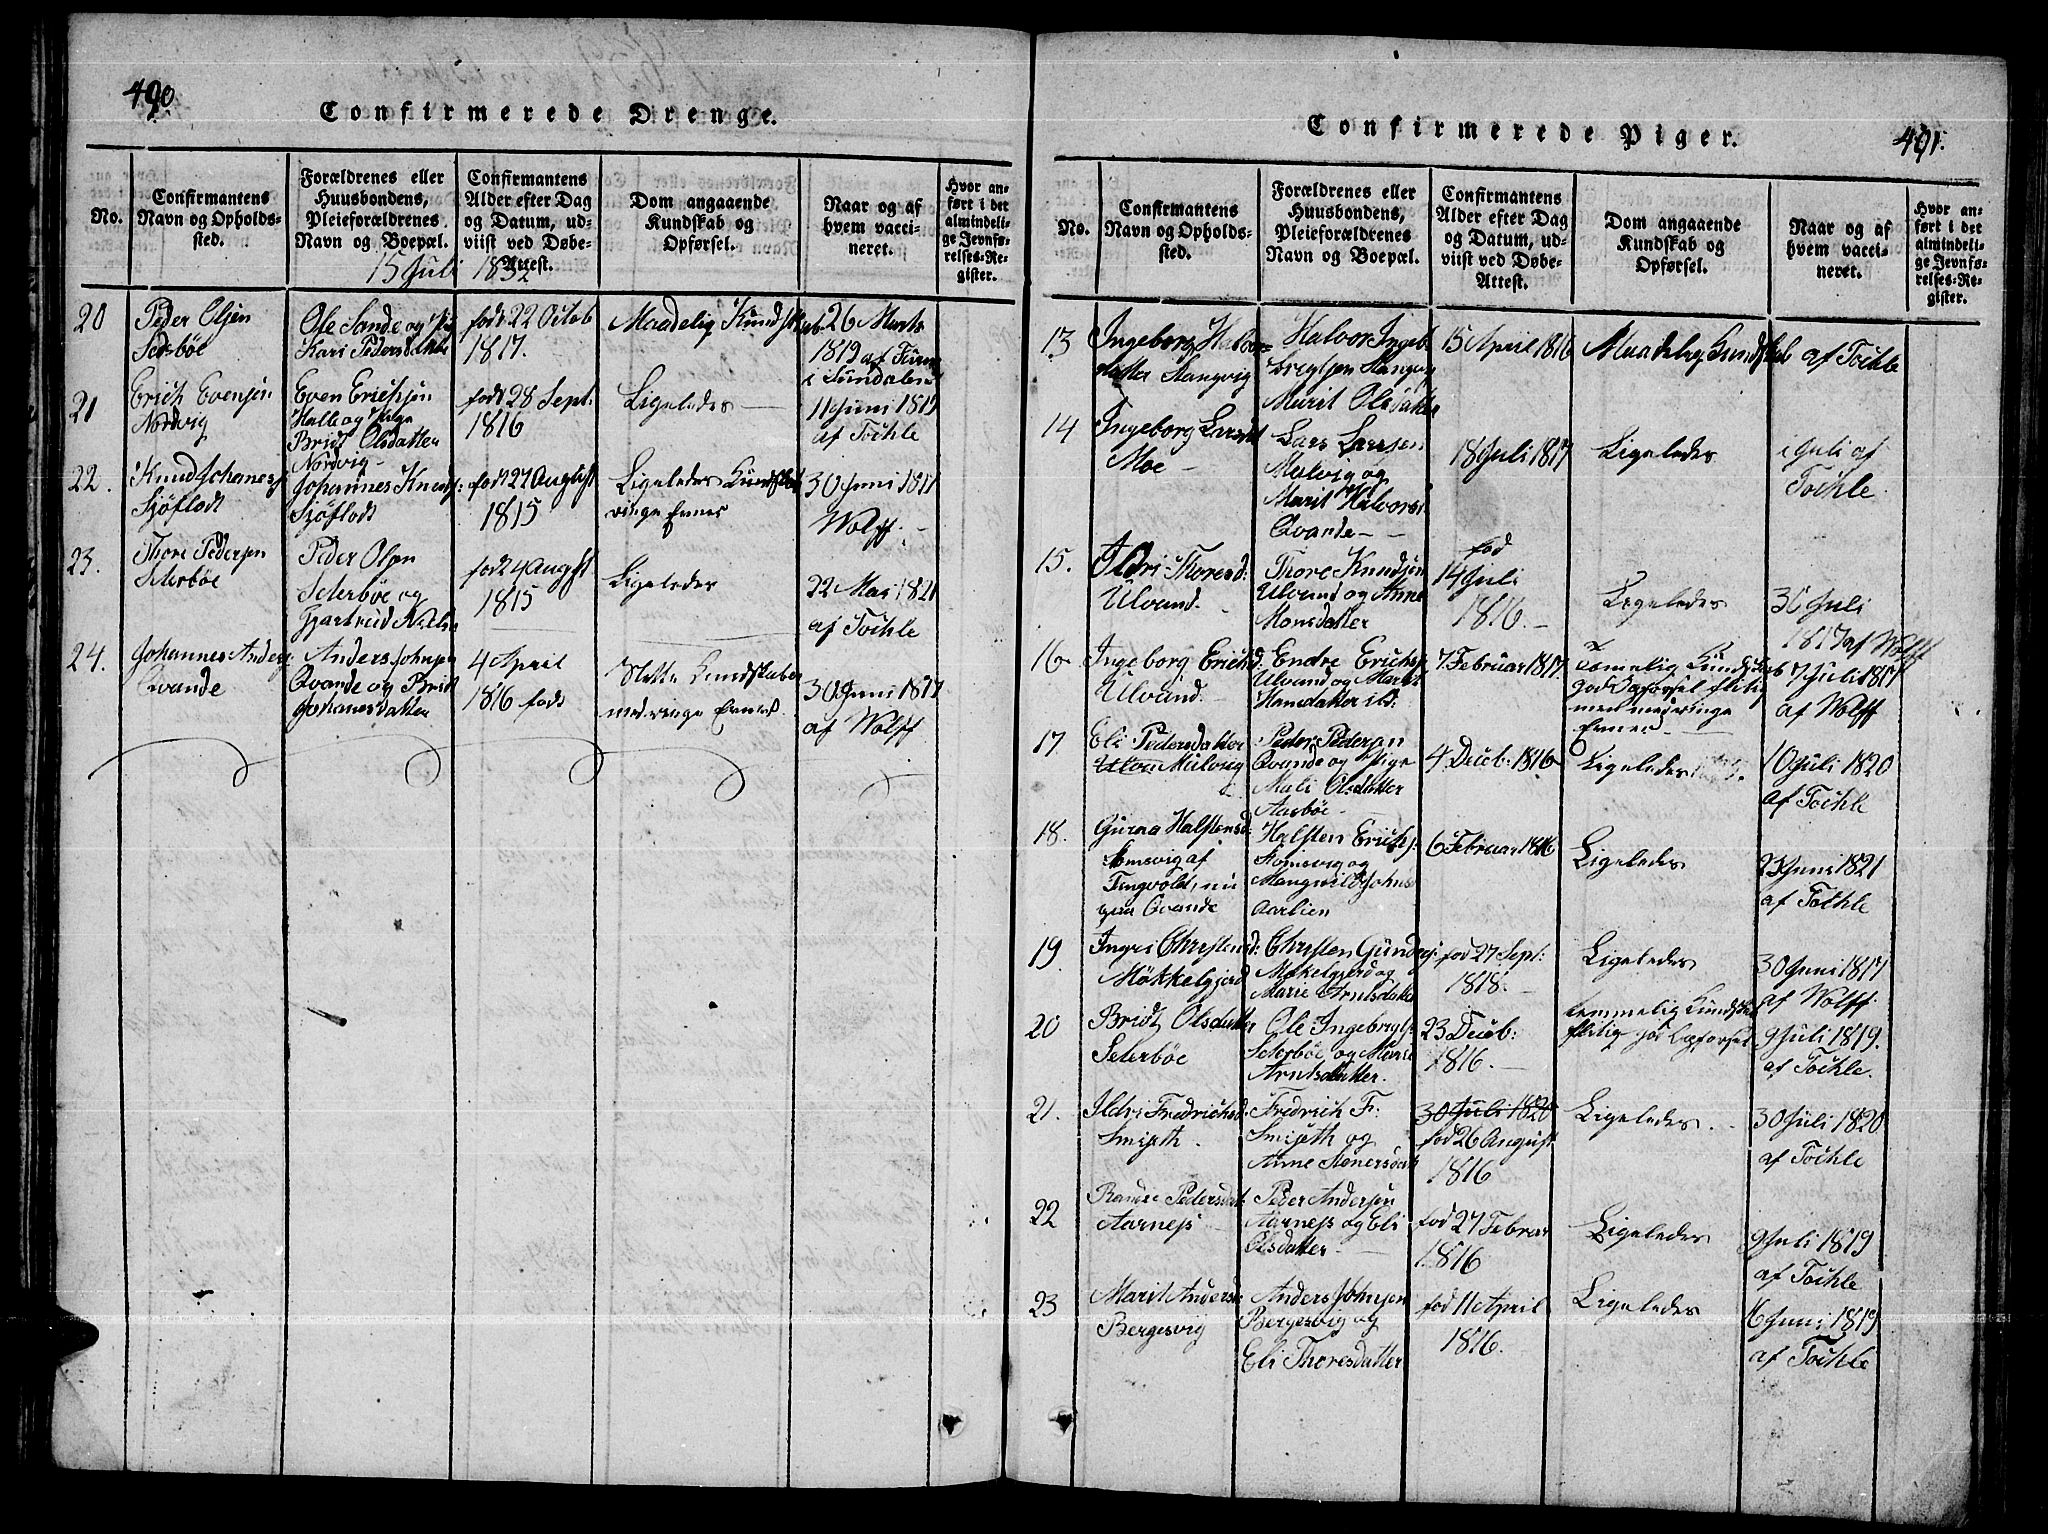 490
Confirmerede Drenge.
No.
Confirmantens
Navn og Opholds-
sted.
Forældrenes eller
Huusbondens,
Pleieforældrenes
Navn og Boepæl.
Confirmantens
Alder efter Dag
og Datum, ud-
viist ved Døbe-
Attest.
Dom angaaende
Kundskab og
Opførsel.
Naar og af
hvem vacci-
neret.
Hvor an-
ført i det
almindeli-
ge Jevnfø-
relses-Re-
gister.
15 Juli 1832
20
Peder Olsen
Seterbøe
Ole Sande og
Kari Pedersdatter
født 22 Octob
1817.
Maadelig Kundskab
26 Marts
1819 af
i Sundalen
21
Erich Evensen
Nordvig
Even Erichsen
Halle og Pige
Bridt Olsdatter
Nordvig
født 28 Sept:
1816
Ligeledes
11 Juni 1819
af Tochle
22.
Knud Johannes:
Sjøflodt
Johannes Knuds:
Sjøflodt
født 27 August
1815
Ligeledes Kundskab
ringe Evner
30 Juni 1817
Wolff.
23.
Thore Pedersen
Seterbøe
Peder Olsen
Seterbøe og
Gjertrud Niels
født 4 August
1815
Ligeledes
22 Mai 1821
af Tochle
24.
Johannes Anders:
Qvande
Anders Johnsen
Qvande og Bridt
Johannesdatter
4 April
1816 født
Slette Kundskaber
med ringe Evner.
30 Juni 1817
af Wolff
Confirmerede Piger.
491.
No.
Confirmantens
Navn og Opholds-
sted.
Forældrenes eller
Huusbondens,
Pleieforældrenes
Navn og Boepæl.
Confirmantens
Alder efter Dag
og Datum, ud-
viist ved Døbe-
Attest.
Dom angaaende
Kundskab og
Opførsel.
Naar og af
hvem vacci-
neret.
Hvor an-
ført i det
almindeli-
ge Jevnfø-
relses-Re-
gister.
13
Ingeborg Halvors
datter Stangvig
Halvor Ingeb
brigtsen Stangvig
Marit Olsdatter
15 April 1816
Maadelig Kundskab
af Tochle
14
Ingeborg Larsd
Moe
Lars Larsen
Mulvig og
Marit Halvorsd
Qvande
18 Juli 1817
Ligeledes
Juli af
Tochle.
15.
Ildri Thoresd:
Ulvund.
Thore Knudsen
Ulvund og Anne
Monsdatter
fød
14 Juli
1816.
Ligeledes
30 Juli
1817 af Wolff
16
Ingeborg Erichsd:
Ulvund.
Endre Erichs:
Ulvund og Marit
Hansdatter ibd:
7 Februar 1817.
Temmelig Kundskab
god Opførsel flitig
men med ringe
Evner
7 Juli 1817
af Wolff
17.
Eli Pedersdatter
Mulvig
Peder Pedersen
Qvande og Pige
Mali Olsdatter
Aasbøe
4 Decb: 1816
Ligeledes
10 Juli 1820
af Tochle
18.
Guroa Halstensd:
af
Tingvold, nu
paa Qvande
Halsten Erichs:
og
Johns
Aarlien
6 Februar 1816
Ligeledes
23 Juni 1821
af Tochle
19
Ingri Christensd:
Møkkelgjerd
Christen Gunders:
Møkelgjerd og
Marie Arntsdatter
fød 27 Sept:
1818.
Ligeledes
30 Juni 1817
af Wolff.
20
Bridt Olsdatter
Seterbøe
Ole Ingebrigts:
Seterbøe og Marie
Arntsdatter.
23 Decb:
1816.
temmelig Kundskab
flitig god Opførsel
9 Juli 1819.
af Tochle.
21.
Ildri Fredrichsd:
Smiseth.
Fredrich Fr:
Smiseth og
Anne Stenersdatt
30 Juli 1820
fød 26 August
1816
Ligeledes
30 Juli 1820
af Tochle
22
Randi Pedersdat:
Aarness
Peder Andersen
Aarness og Eli
Olsdatter
fød 27 Februar
1816
Ligeledes
9 Juli 1819
af Tochle
23
Marit Andersd:
Bergesvig
Anders Johnsen
Bergesvig og
Eli Thoresdatter
fød 11 April
1816.
Ligeledes
16 Juni 1819
af Tochle